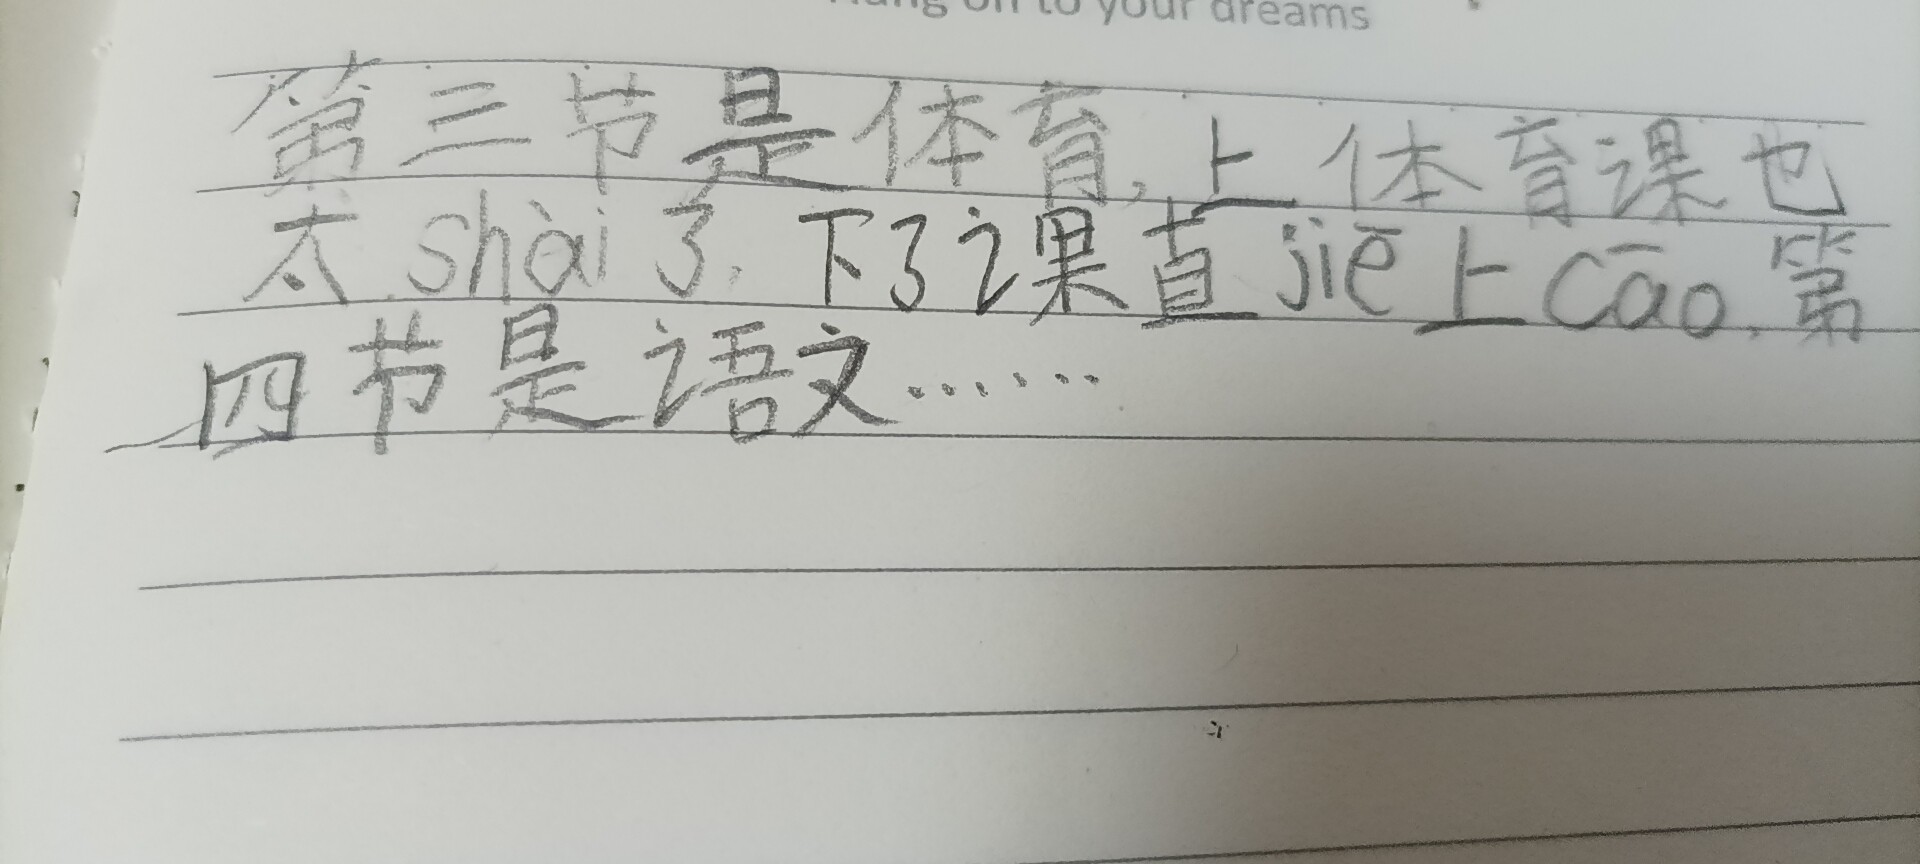 Hang on to your dreams
第三节是体育,上体育课也
太shài了,下了课直jiē上cāo,第
四节是语文……